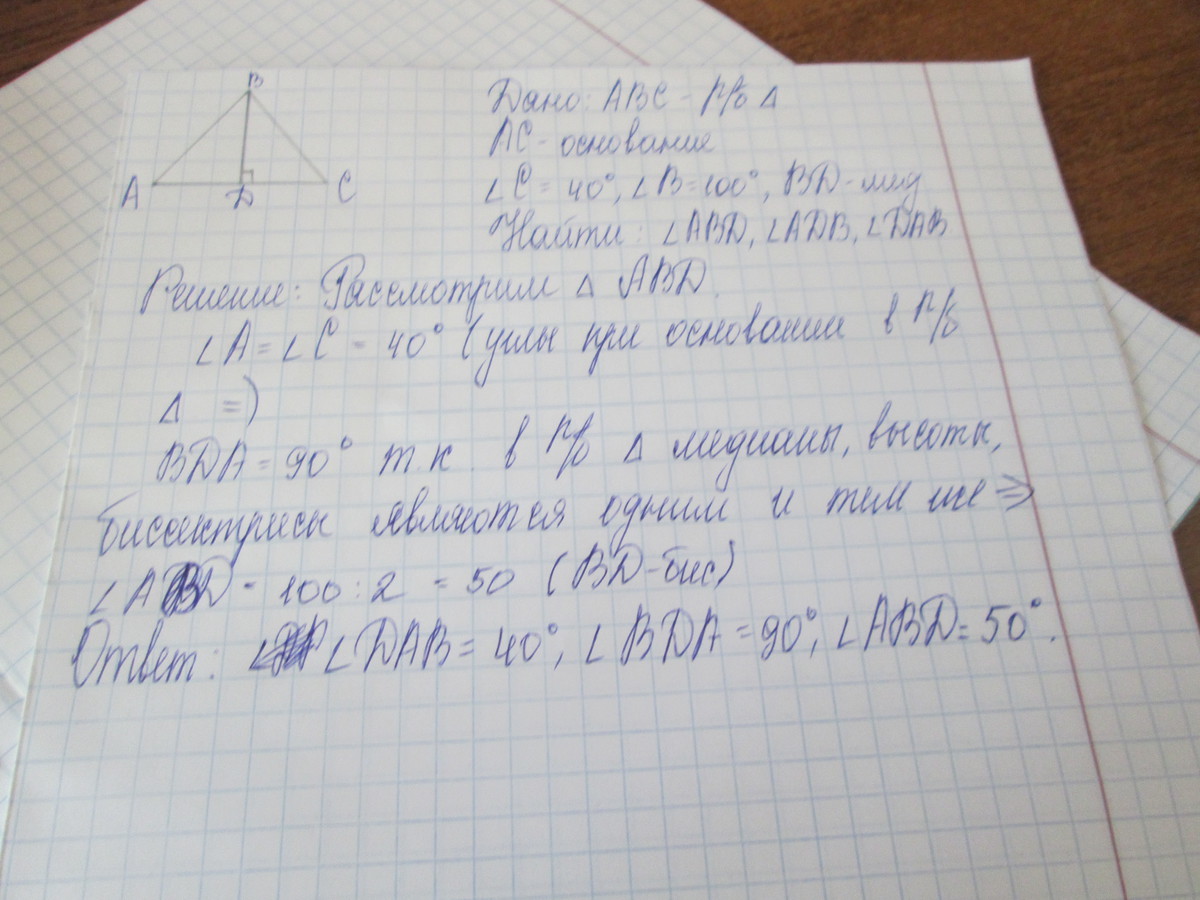 B
A
D
C
Дано: ABC - р/б Δ
AC - основание
∠C = 40°, ∠B = 100°, BD - мед
Найти: ∠ABD, ∠ADB, ∠DAB
Решение: Рассмотрим Δ ABD.
∠A = ∠C = 40° (углы при основании в р/б
Δ =)
BDA = 90° т.к. в р/б Δ медианы, высоты,
биссектрисы являются одним и тем же ⇒
∠ABD = 100 : 2 = 50 (BD - бис)
Ответ: ∠DAB = 40°, ∠BDA = 90°, ∠ABD = 50°.